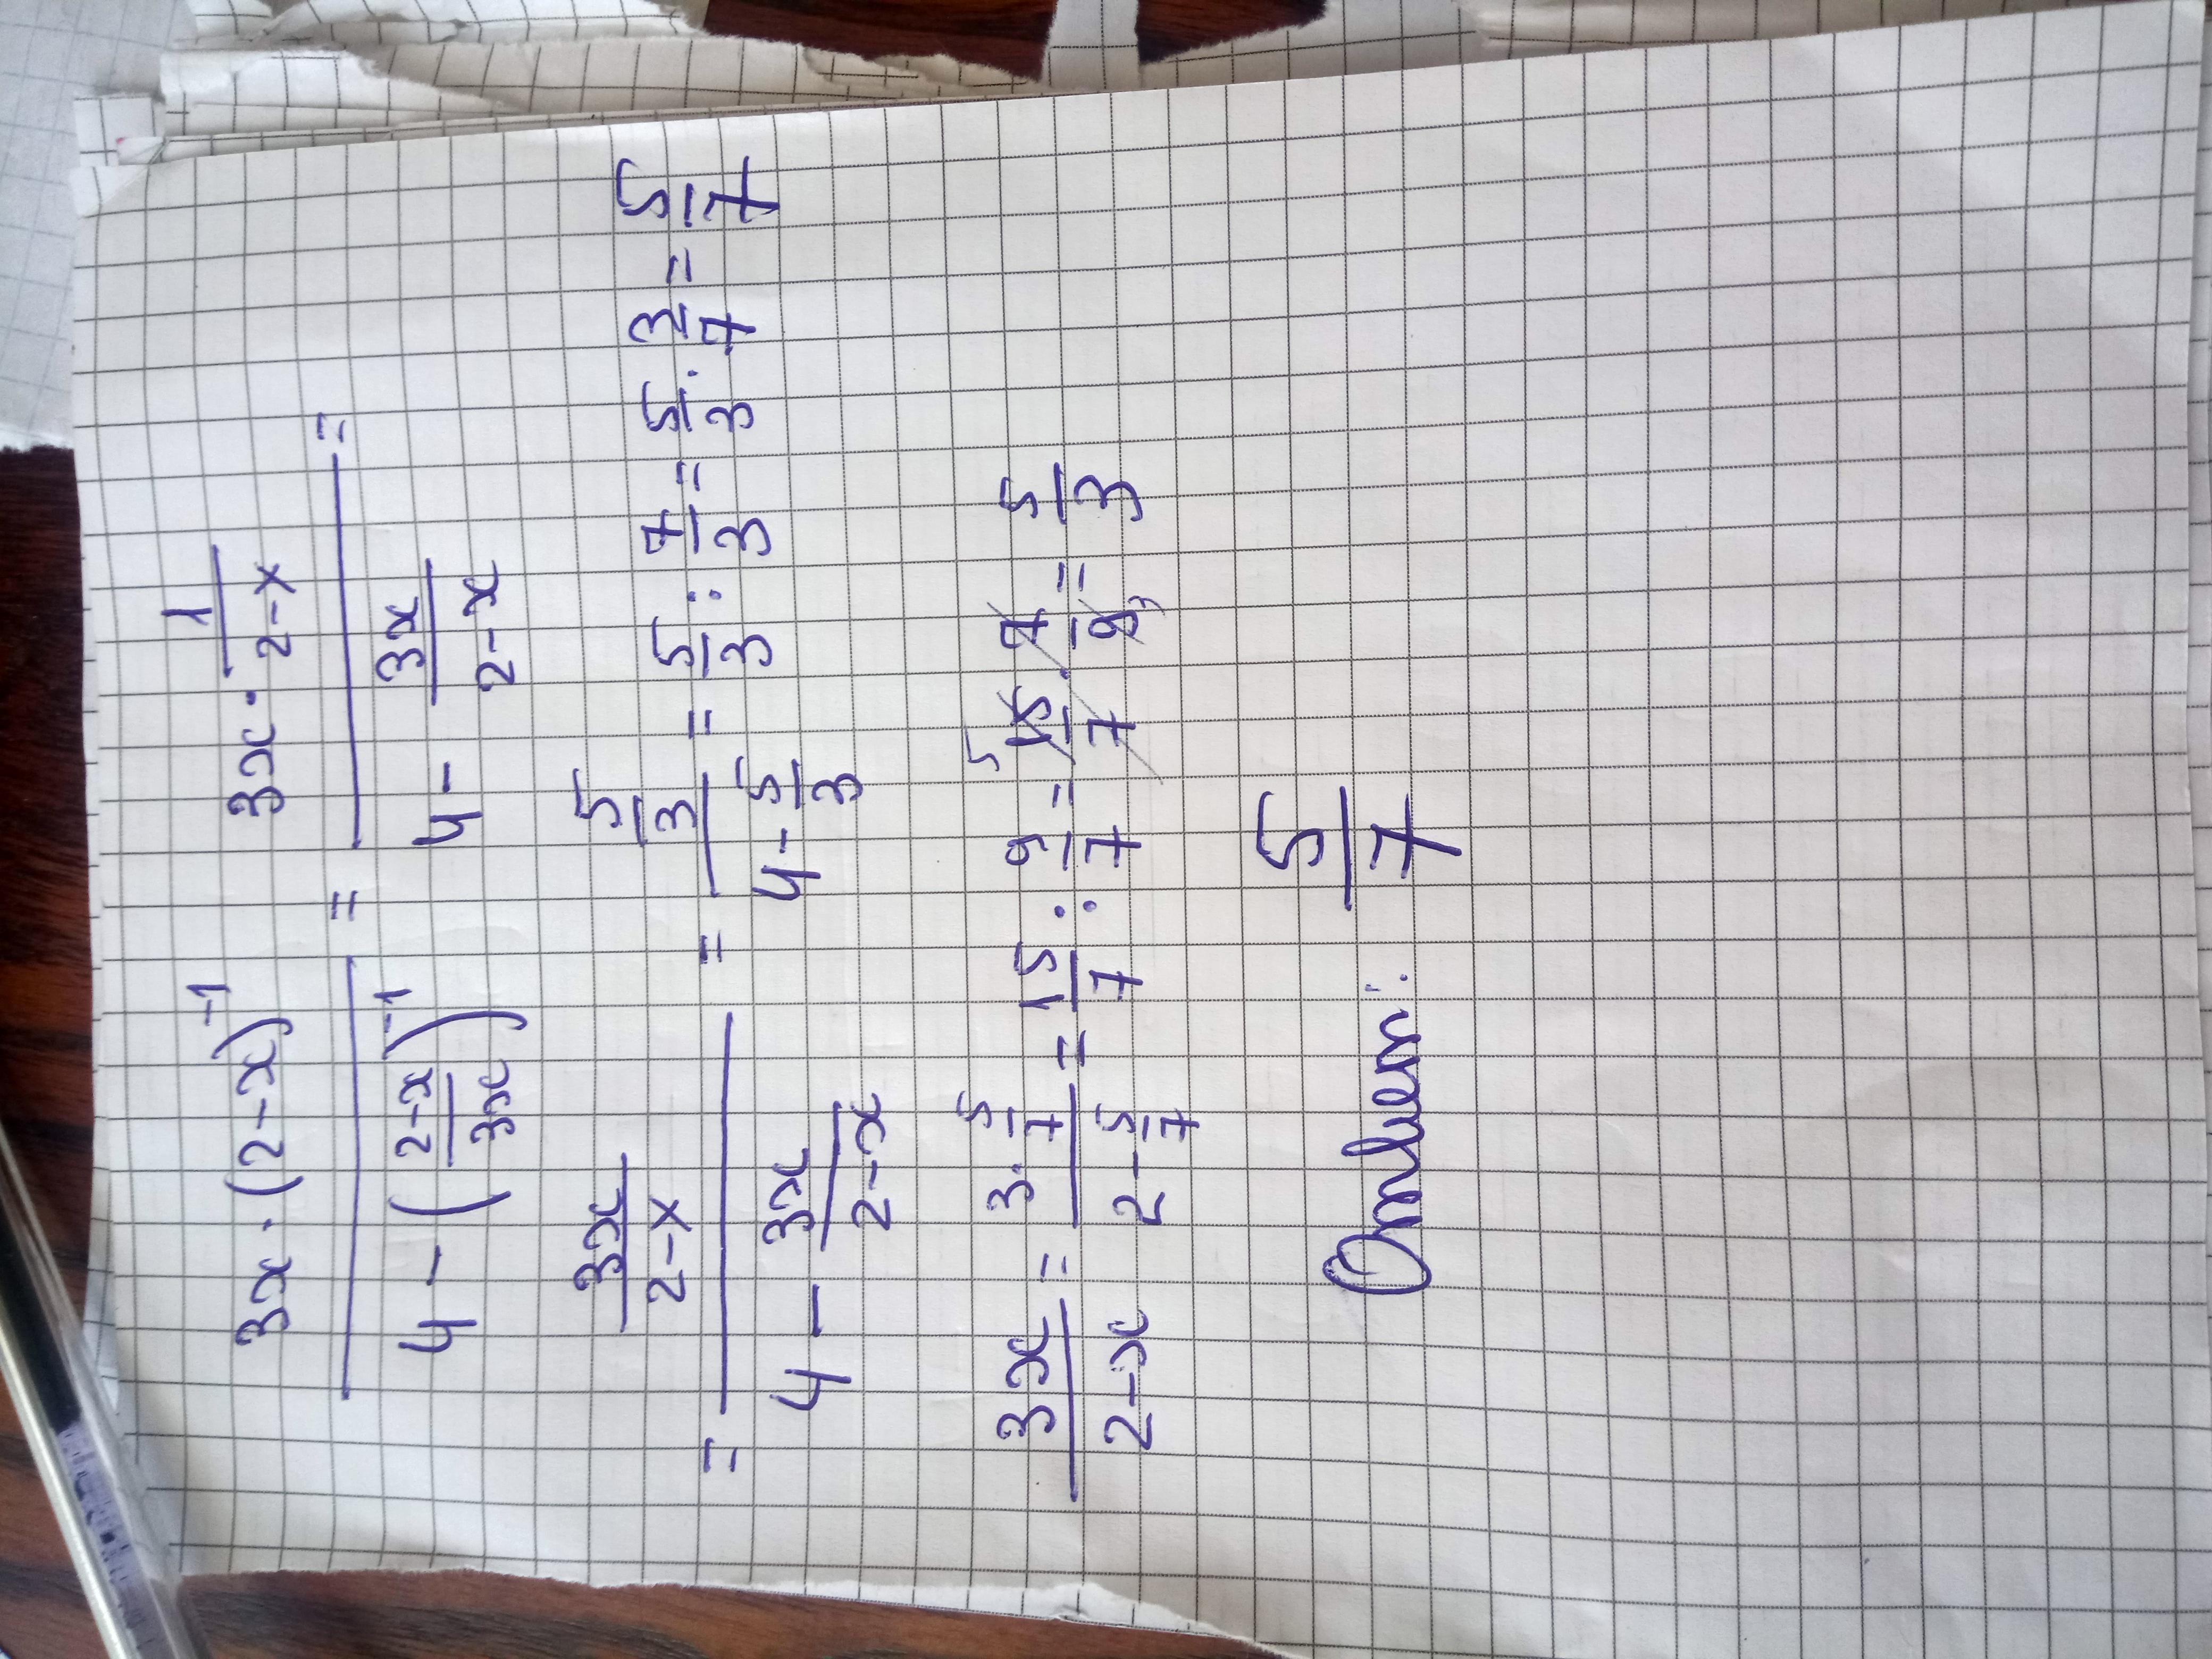 3x · (2-x)^-1 / (4 - ((2-x)/(3x))^-1) = (3x · 1/(2-x)) / (4 - 3x/(2-x)) =
= (3x/(2-x)) / (4 - 3x/(2-x)) = (5/3) / (4 - 5/3) = 5/3 : 7/3 = 5/3 · 3/7 = 5/7
3x/(2-x) = (3 · 5/7) / (2 - 5/7) = 15/7 : 9/7 = 5 15/7 · 7/9 3 = 5/3
Ответ: 5/7